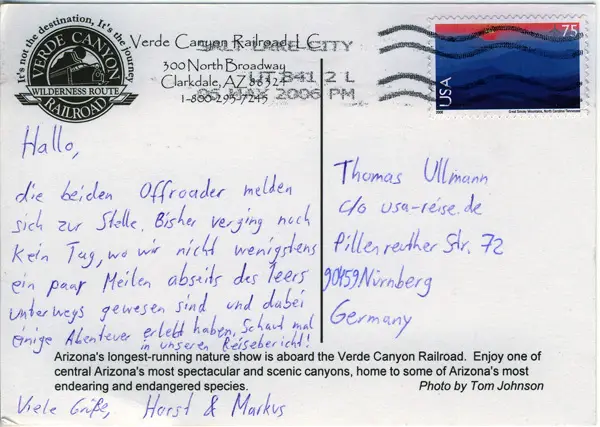 It's not the destination, It's the journey
VERDE CANYON
WILDERNESS ROUTE
RAILROAD
Verde Canyon Railroad LC
300 North Broadway
Clarkdale, AZ 86324
1-800-293-7245
SALT LAKE CITY
UT 841 2 L
05 MAY 2006 PM
75
USA
2006
Great Smoky Mountains, North Carolina/Tennessee
Hallo,
die beiden Offroader melden
sich zur Stelle. Bisher verging noch
kein Tag, wo wir nicht wenigstens
ein paar Meilen abseits des Teers
unterwegs gewesen sind und dabei
einige Abenteuer erlebt haben. Schaut mal
in unseren Reisebericht!
Viele Grüße, Horst & Markus
Thomas Ullmann
c/o usa-reise.de
Pillenreuther Str. 72
90459 Nürnberg
Germany
Arizona's longest-running nature show is aboard the Verde Canyon Railroad. Enjoy one of
central Arizona's most spectacular and scenic canyons, home to some of Arizona's most
endearing and endangered species.
Photo by Tom Johnson